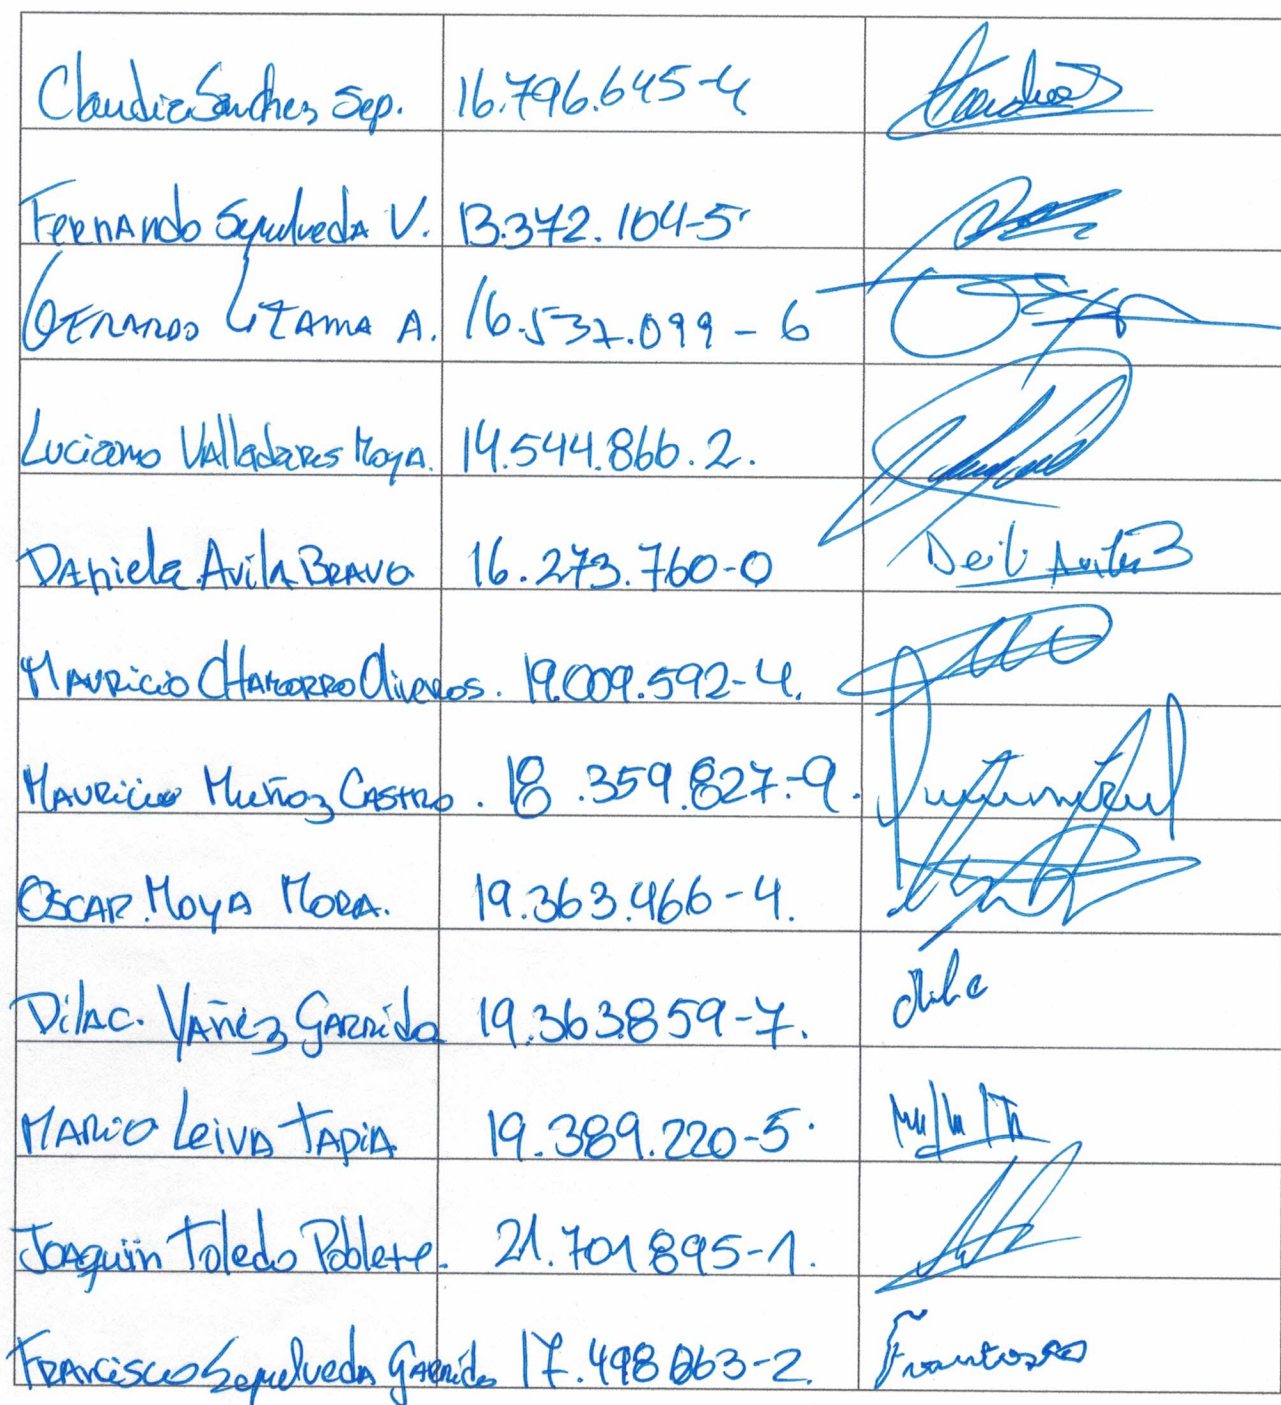 Claudia Sanchez Sep. 16.796.645-4
Fernando Sepulveda V. 13.372.104-5
Gerardo Litama A. 16.537.099-6
Luciano Valladares Moya. 14.544.866.2.
Daniela Avila Bravo 16.273.760-0
Mauricio Chamorro Oliveros. 19.009.592-4.
Mauricio Muñoz Castro. 18.359.827-9.
Oscar Moya Mora. 19.363.466-4.
Dilac. Yañez Garrido 19.363.859-7.
Mario Leiva Tapia 19.389.220-5.
Joaquin Toledo Poblete. 21.701895-1.
Francisco Sepulveda Garrido 17.498 063-2.